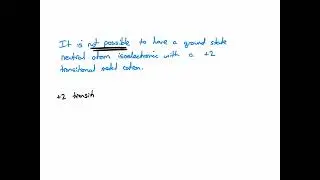 It is not possible to have a ground state
neutral atom isoelectronic with a +2
transitional metal cation.
+2 transiti